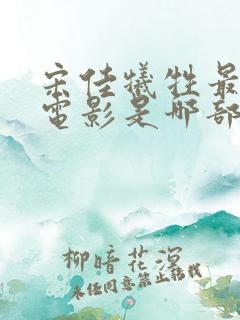 宋佳犧牲最
電影是哪部
柳暗花溟
未经同意禁止转载